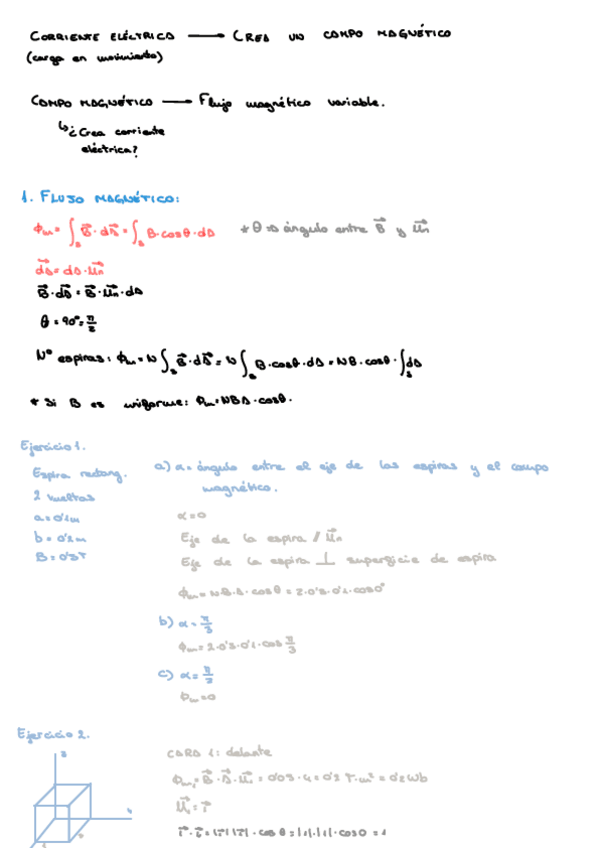 CORRIENTE ELÉCTRICA ⟶ CREA UN CAMPO MAGNÉTICO
(carga en movimiento)
CAMPO MAGNÉTICO ⟶ Flujo magnético variable.
↳ ¿Crea corriente
eléctrica?
1. FLUJO MAGNÉTICO:
ϕm = ∫s B⃗·dS⃗ = ∫s B·cosθ·dS * θ ⇒ ángulo entre B⃗ y u⃗n
dS⃗ = dS·u⃗n
B⃗·dS⃗ = B⃗·u⃗n·dS
θ = 90° = π/2
Nº espiras: ϕm = N ∫s B⃗·dS⃗ = N ∫s B·cosθ·dS = NB·cosθ·∫s dS
* Si B es uniforme: ϕm = NBS·cosθ.
Ejercicio 1.
Espira rectang.
2 vueltas
a = 0'1m
b = 0'2m
a) α = ángulo entre el eje de las espiras y el campo
magnético.
α = 0
Eje de la espira // u⃗n
Eje de la espira ⊥ superficie de espira
b) α = π/3
c) α = π/2
ϕm = 0
Ejercicio 2.
CARA 1: delante